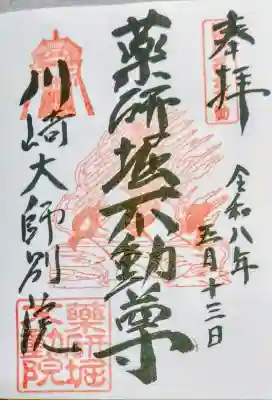 奉拝
令和八年
五月十三日
薬研堀不動尊
川崎大師別院
薬研堀
不動院